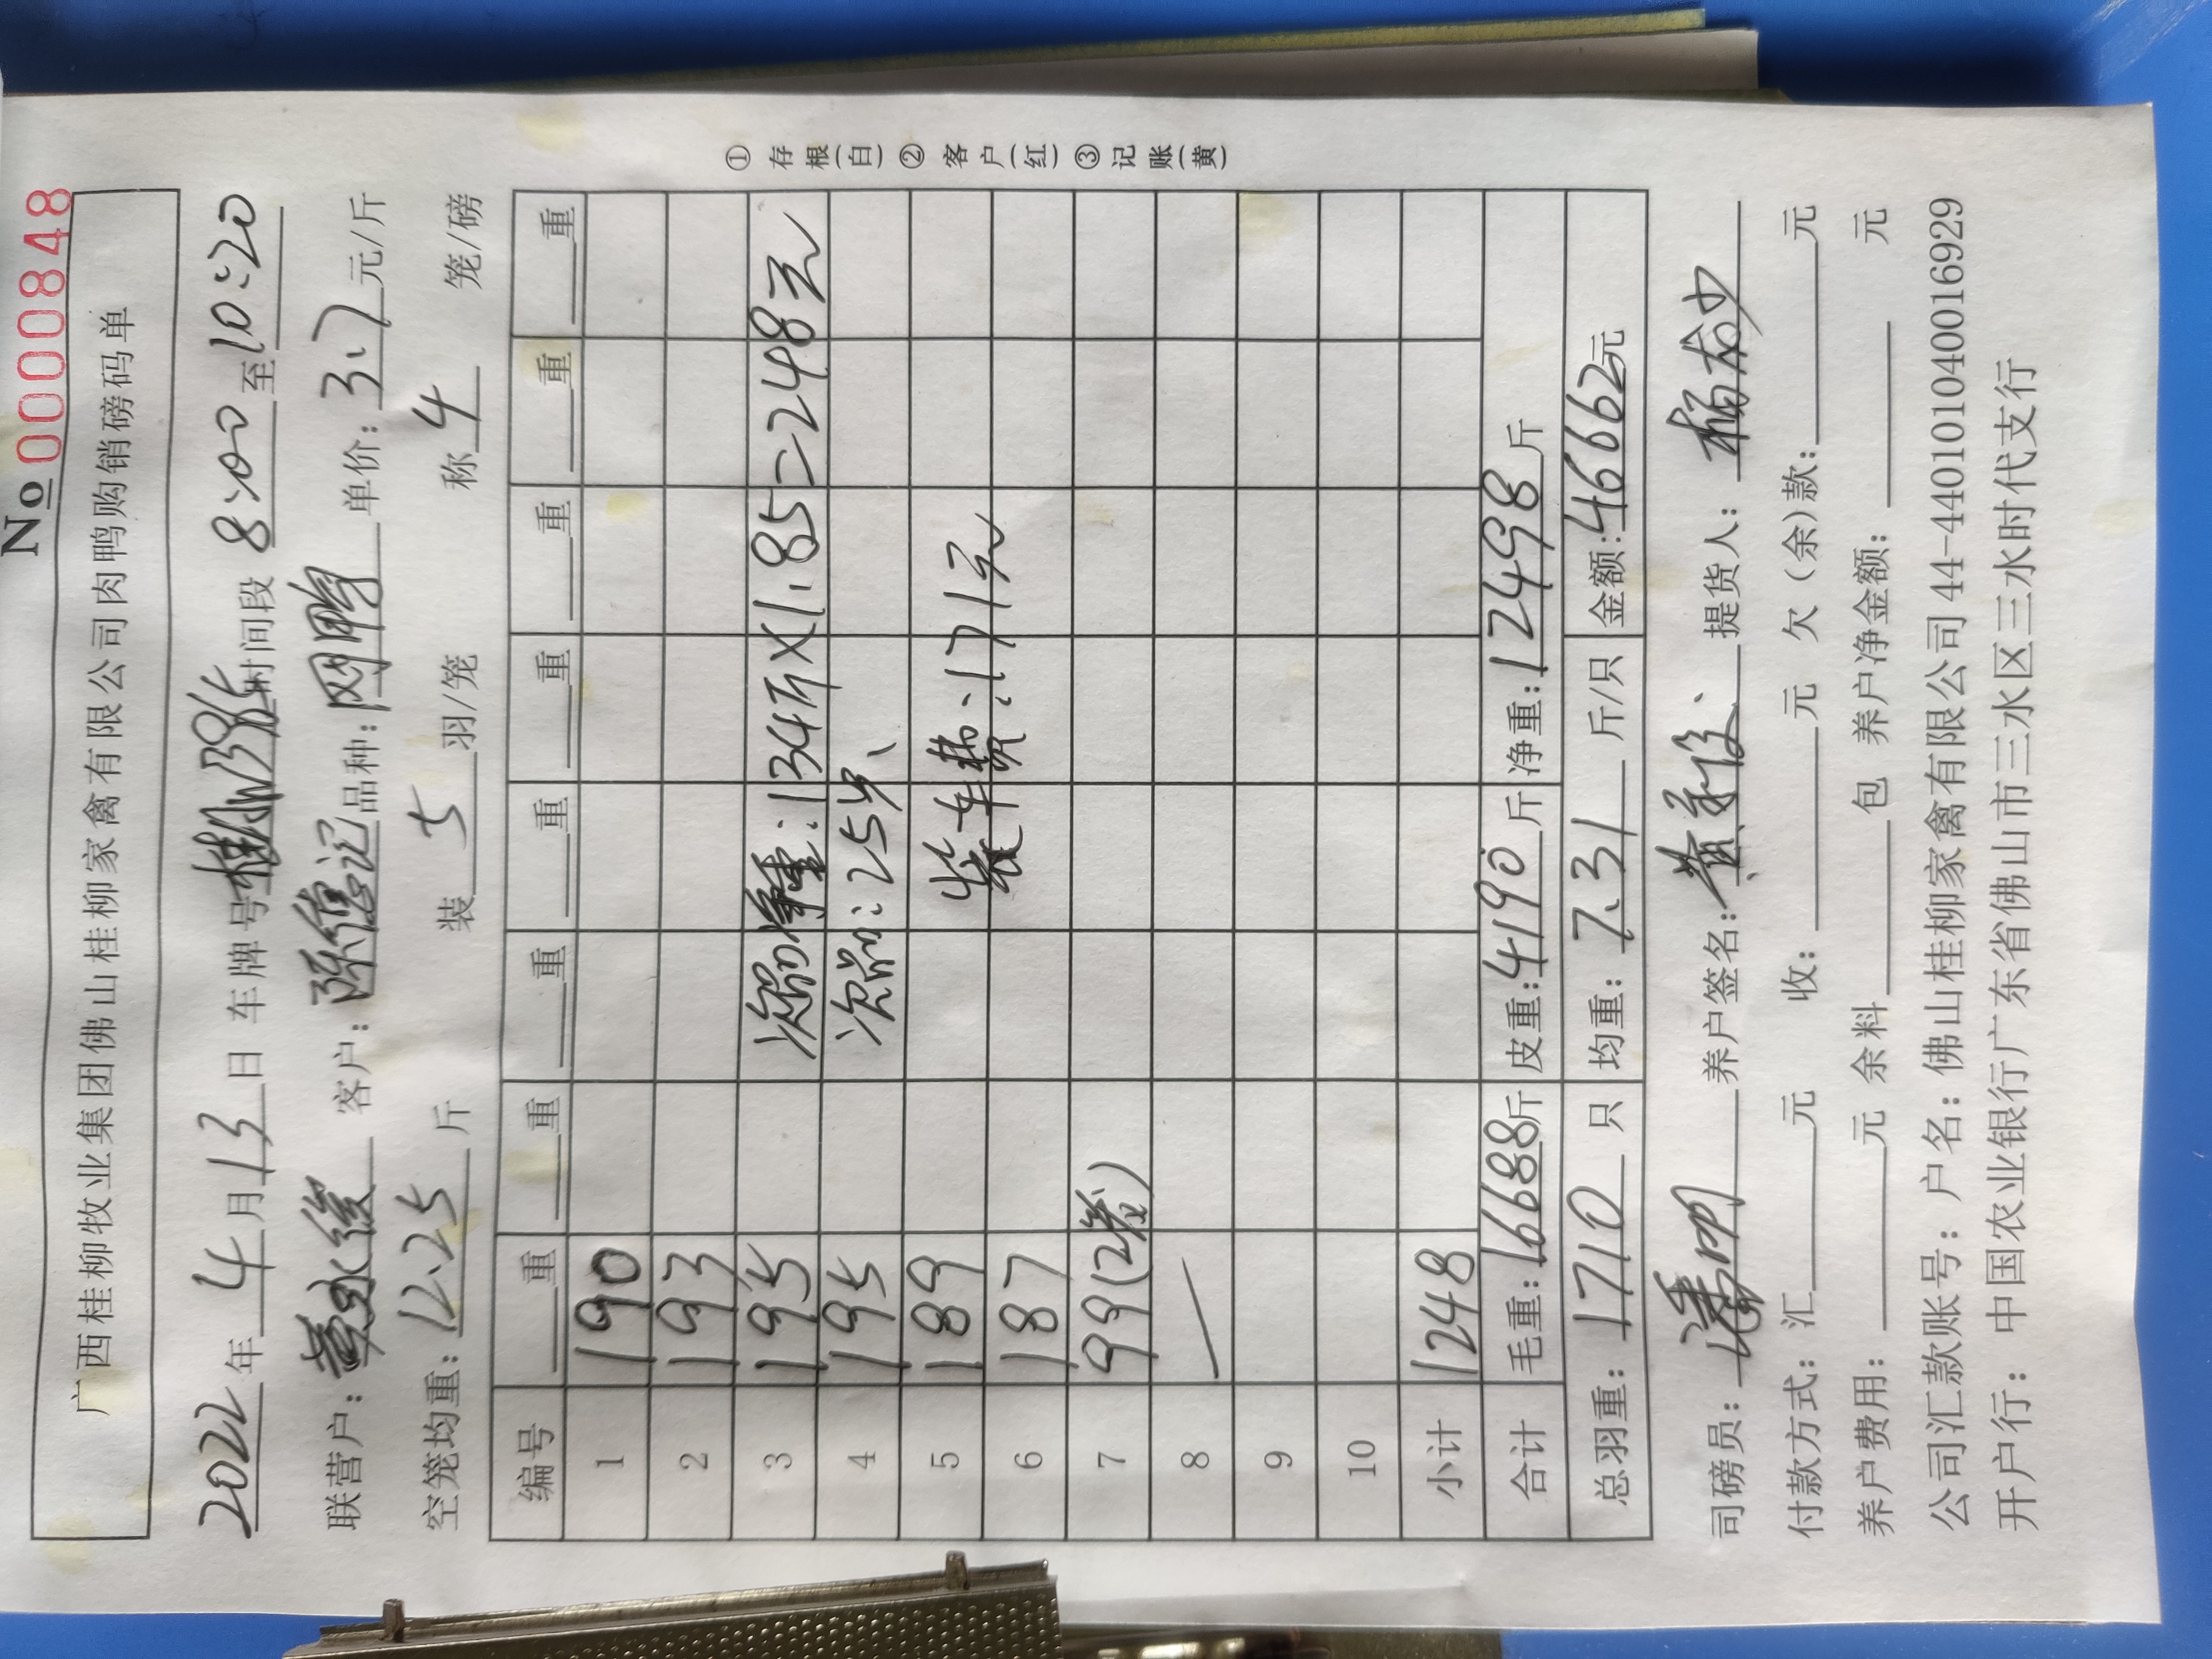 No 0000848
广西桂柳牧业集团佛山桂柳家禽有限公司肉鸭购销磅码单
2022年 4月13日 车牌号 时间段 8:00 至 10:20
联营户: 黄永俊 客户: 陈信记 品种: 网鸭 单价: 3.7 元/斤
空笼均重: 12.25 斤 装 5 羽/笼 称 4 笼/磅
编号 重 重 重 重 重 重 重 重
1 190
2 193
3 195 次品净重:134斤×1.85=248元
4 195 次品:25只
5 189 装车费:171元
6 187
7 99(2卷)
8
9
10
小计 1248
合计 毛重:16688斤 皮重:4190斤 净重:12498斤
总羽重: 1710 只 均重: 7.31 斤/只 金额:46662元
司磅员: 养户签名: 提货人:
付款方式: 汇 元 收: 元 欠(余)款: 元
养户费用: 元 余料 包 养户净金额: 元
公司汇款账号: 户名: 佛山桂柳家禽有限公司 44-440101040016929
开户行: 中国农业银行广东省佛山市三水区三水时代支行
① 存根(白) ② 客户(红) ③ 记账(黄)